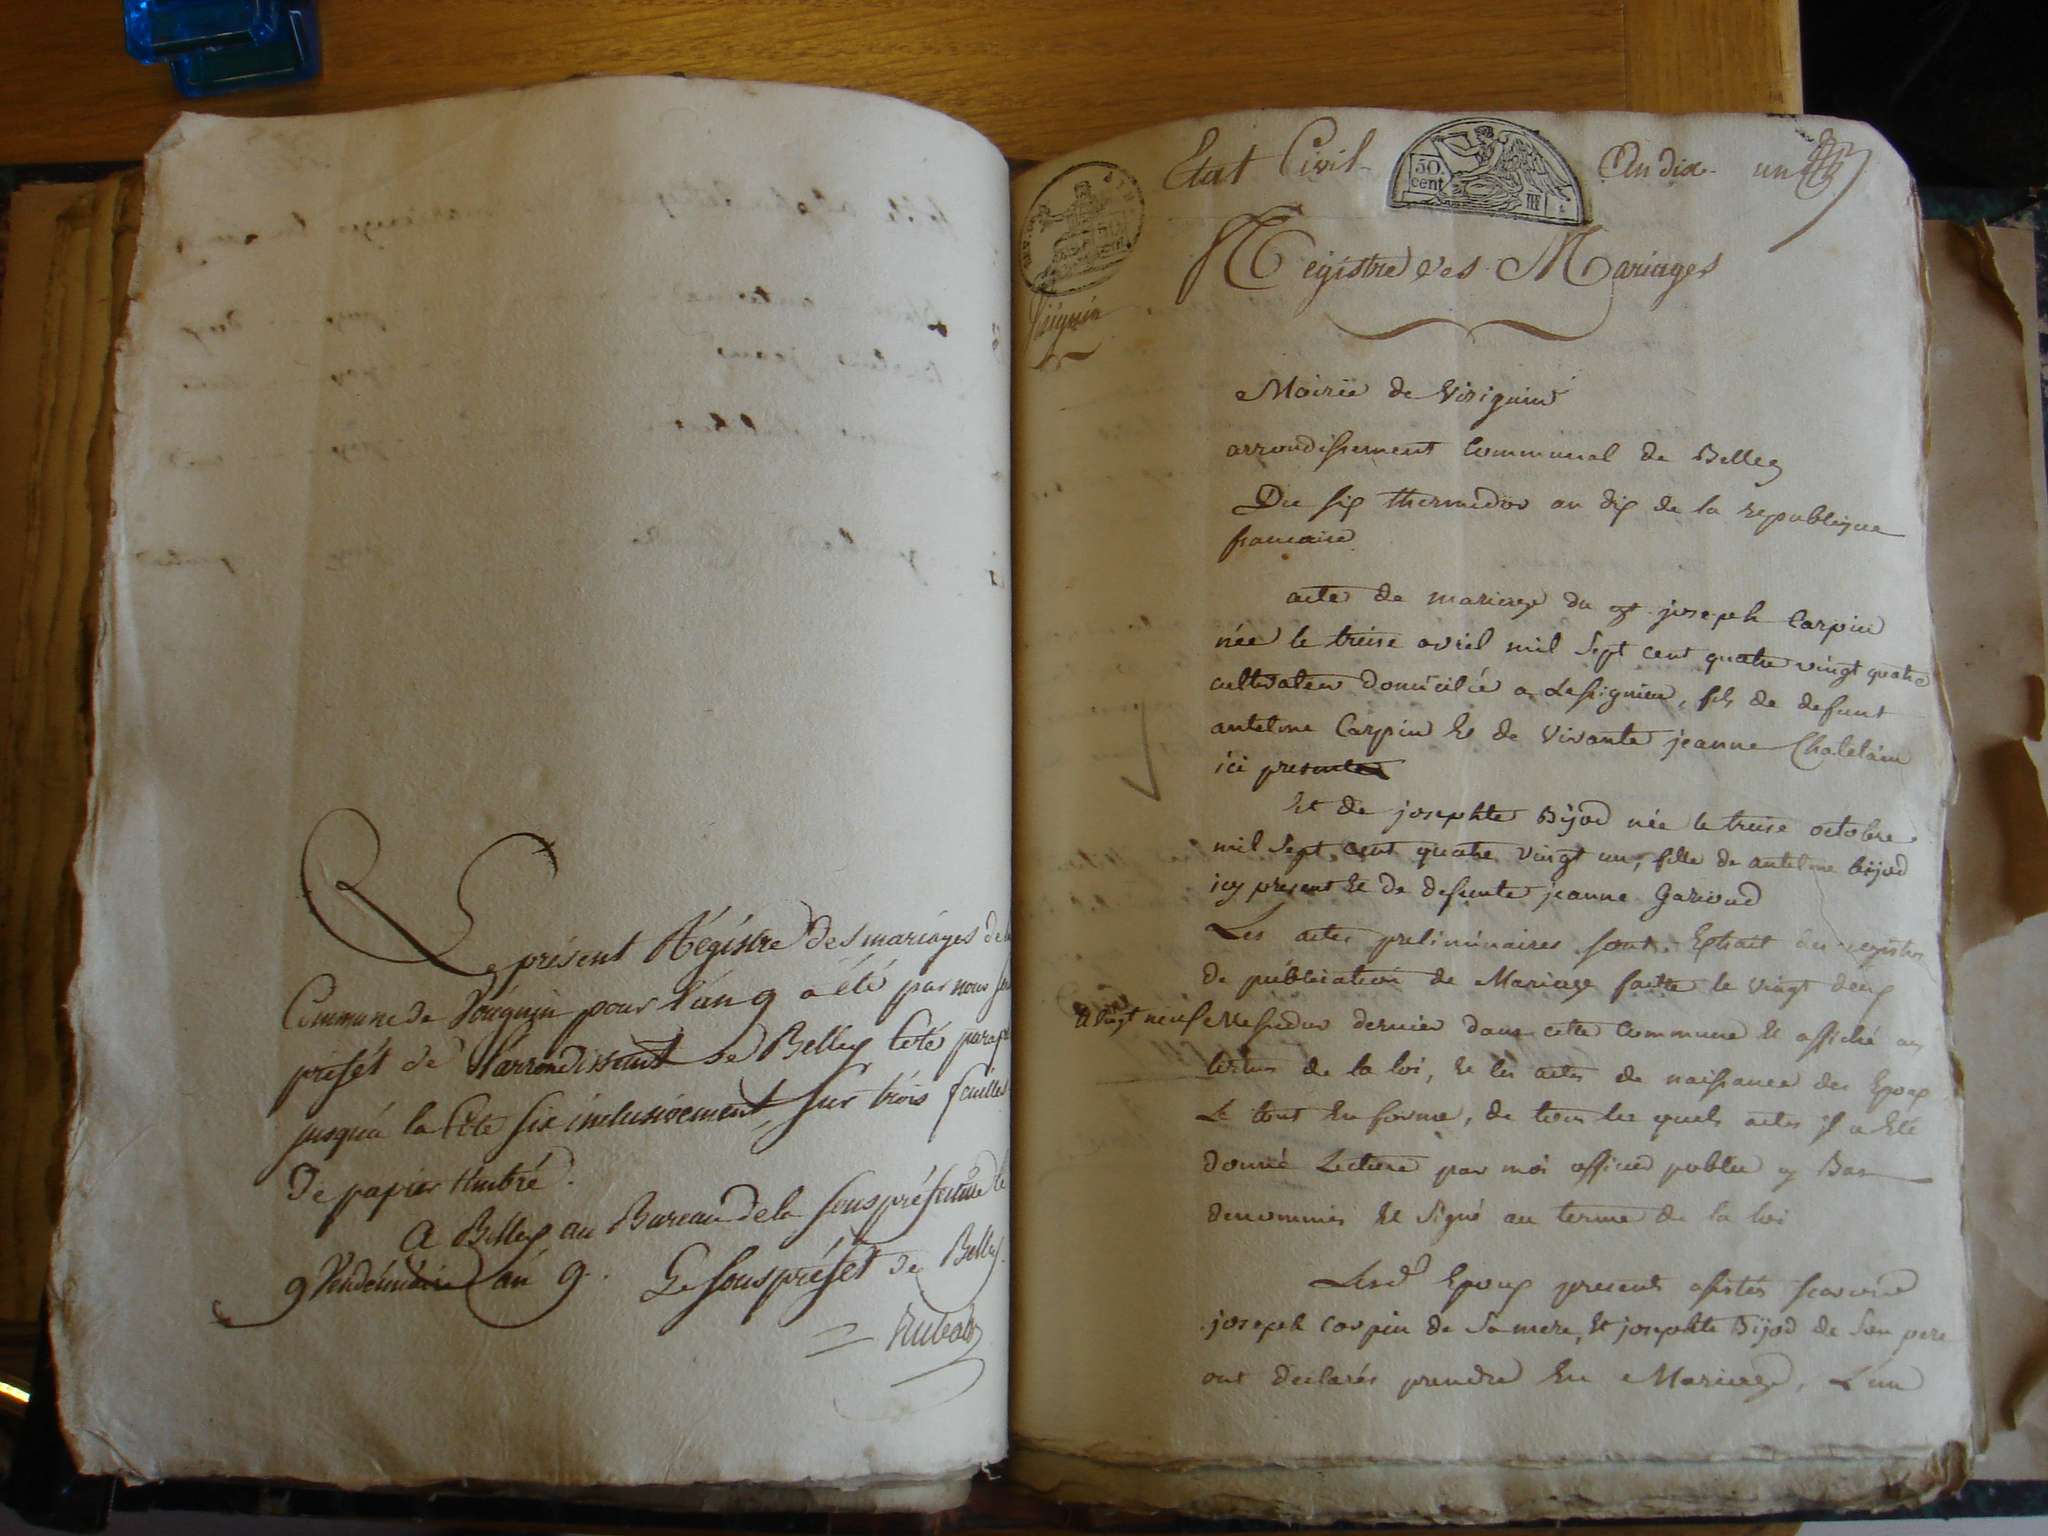 Le présent Régistre des mariages de la
Commune de Viriguin pour l'an 9 a été par nous sous
préfet de l'arrondissent de Belley Coté paraphé
jusqu'a la Cote six inclusivement, sur trois feuilles
De papier timbré.
A Belley au Bureau de la sous préfecture le
9 Vendémiaire an 9. Le sous préfet de Belley.
Rubat
Etat Civil
50
cent
An dix
un
Viriguin
Régistre des Mariages
Mairie de Viriguin
arrondissement Communal de Belley
Du six thermidor an dix de la republique
francaise
acte de mariage du joseph Carpin
née le treise avril mil sept cent quatre vingt quatre
cultivateur domicilié a Lassignieu, fils de defunt
antelme Carpin Et de vivante jeanne Chatelain
ici presente
Et de josephte Bijod née le treise octobre
mil sept cent quatre vingt un, fille de antelme bijod
icy present Et de defunte jeanne Garioud
Les actes preliminaires sont Extrait du registre
de publication de Mariage faitte le vingt deux
et vingt neuf Messidor dernier dans cette Commune Et affiché aux
termes de la loi, Et les actes de naissance des Epoux
Le tout En forme, de tous les quels actes il a Eté
donné Lecture par moi officier public y Bas
denommés Et signé au terme de la loi
Lesd. Epoux presents assistés scavoir
joseph Carpin de sa mere, Et josephte Bijod de son pere
ont declarés prendre En Mariage, L'un